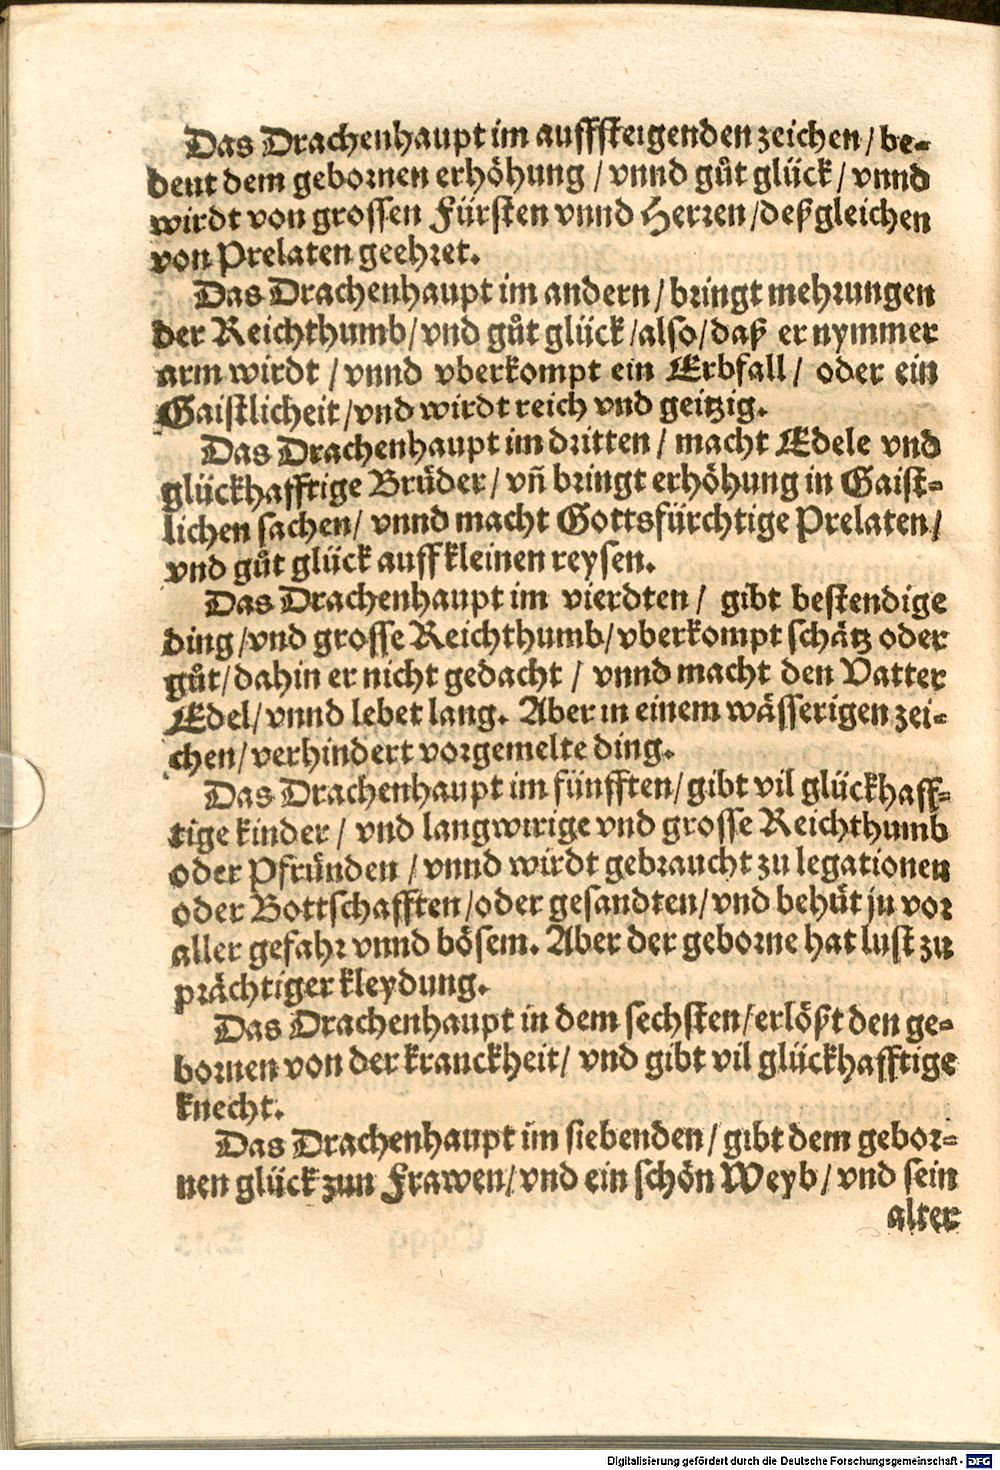 Das Drachenhaupt im auffsteigenden zeichen / be-
deut dem gebornen erhöhung / vnnd gůt glück / vnnd
wirdt von grossen Fürsten vnnd Herren / deßgleichen
von Prelaten geehret.
Das Drachenhaupt im andern / bringt mehrungen
der Reichthumb / vnd gůt glück / also / daß er nymmer
arm wirdt / vnnd vberkompt ein Erbfall / oder ein
Gaistlicheit / vnd wirdt reich vnd geitzig.
Das Drachenhaupt im dritten / macht Edele vnd
glückhafftige Brüder / vñ bringt erhöhung in Gaist-
lichen sachen / vnnd macht Gottsfürchtige Prelaten /
vnd gůt glück auff kleinen reysen.
Das Drachenhaupt im vierdten / gibt bestendige
ding / vnd grosse Reichthumb / vberkompt schätz oder
gůt / dahin er nicht gedacht / vnnd macht den Vatter
Edel / vnnd lebet lang. Aber in einem wässerigen zei-
chen / verhindert vorgemelte ding.
Das Drachenhaupt im fünfften / gibt vil glückhaff-
tige kinder / vnd langwirige vnd grosse Reichthumb
oder Pfründen / vnnd wirdt gebraucht zu legationen
oder Bottschafften / oder gesandten / vnd behüt jn vor
aller gefahr vnnd bösem. Aber der geborne hat lust zu
prächtiger kleydung.
Das Drachenhaupt in dem sechsten / erlößt den ge-
bornen von der kranckheit / vnd gibt vil glückhafftige
knecht.
Das Drachenhaupt im siebenden / gibt dem gebor-
nen glück zun Frawen / vnd ein schön Weyb / vnd sein
alter
Digitalisierung gefördert durch die Deutsche Forschungsgemeinschaft - DFG